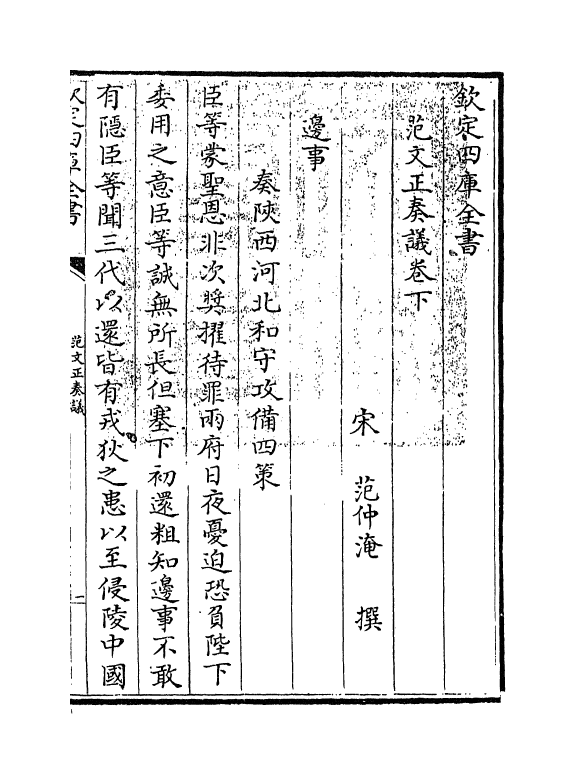 欽定四庫全書
范文正奏議卷下
宋 范仲淹 撰
邊事
奏陝西河北和守攻備四策
臣等蒙聖恩非次奬擢待罪兩府日夜憂迫恐負陛下
委用之意臣等誠無所長但塞下初還粗知邊事不敢
有隠臣等聞三代以還皆有戎狄之患以至侵陵中國
欽定四庫全書
范文正奏議
一